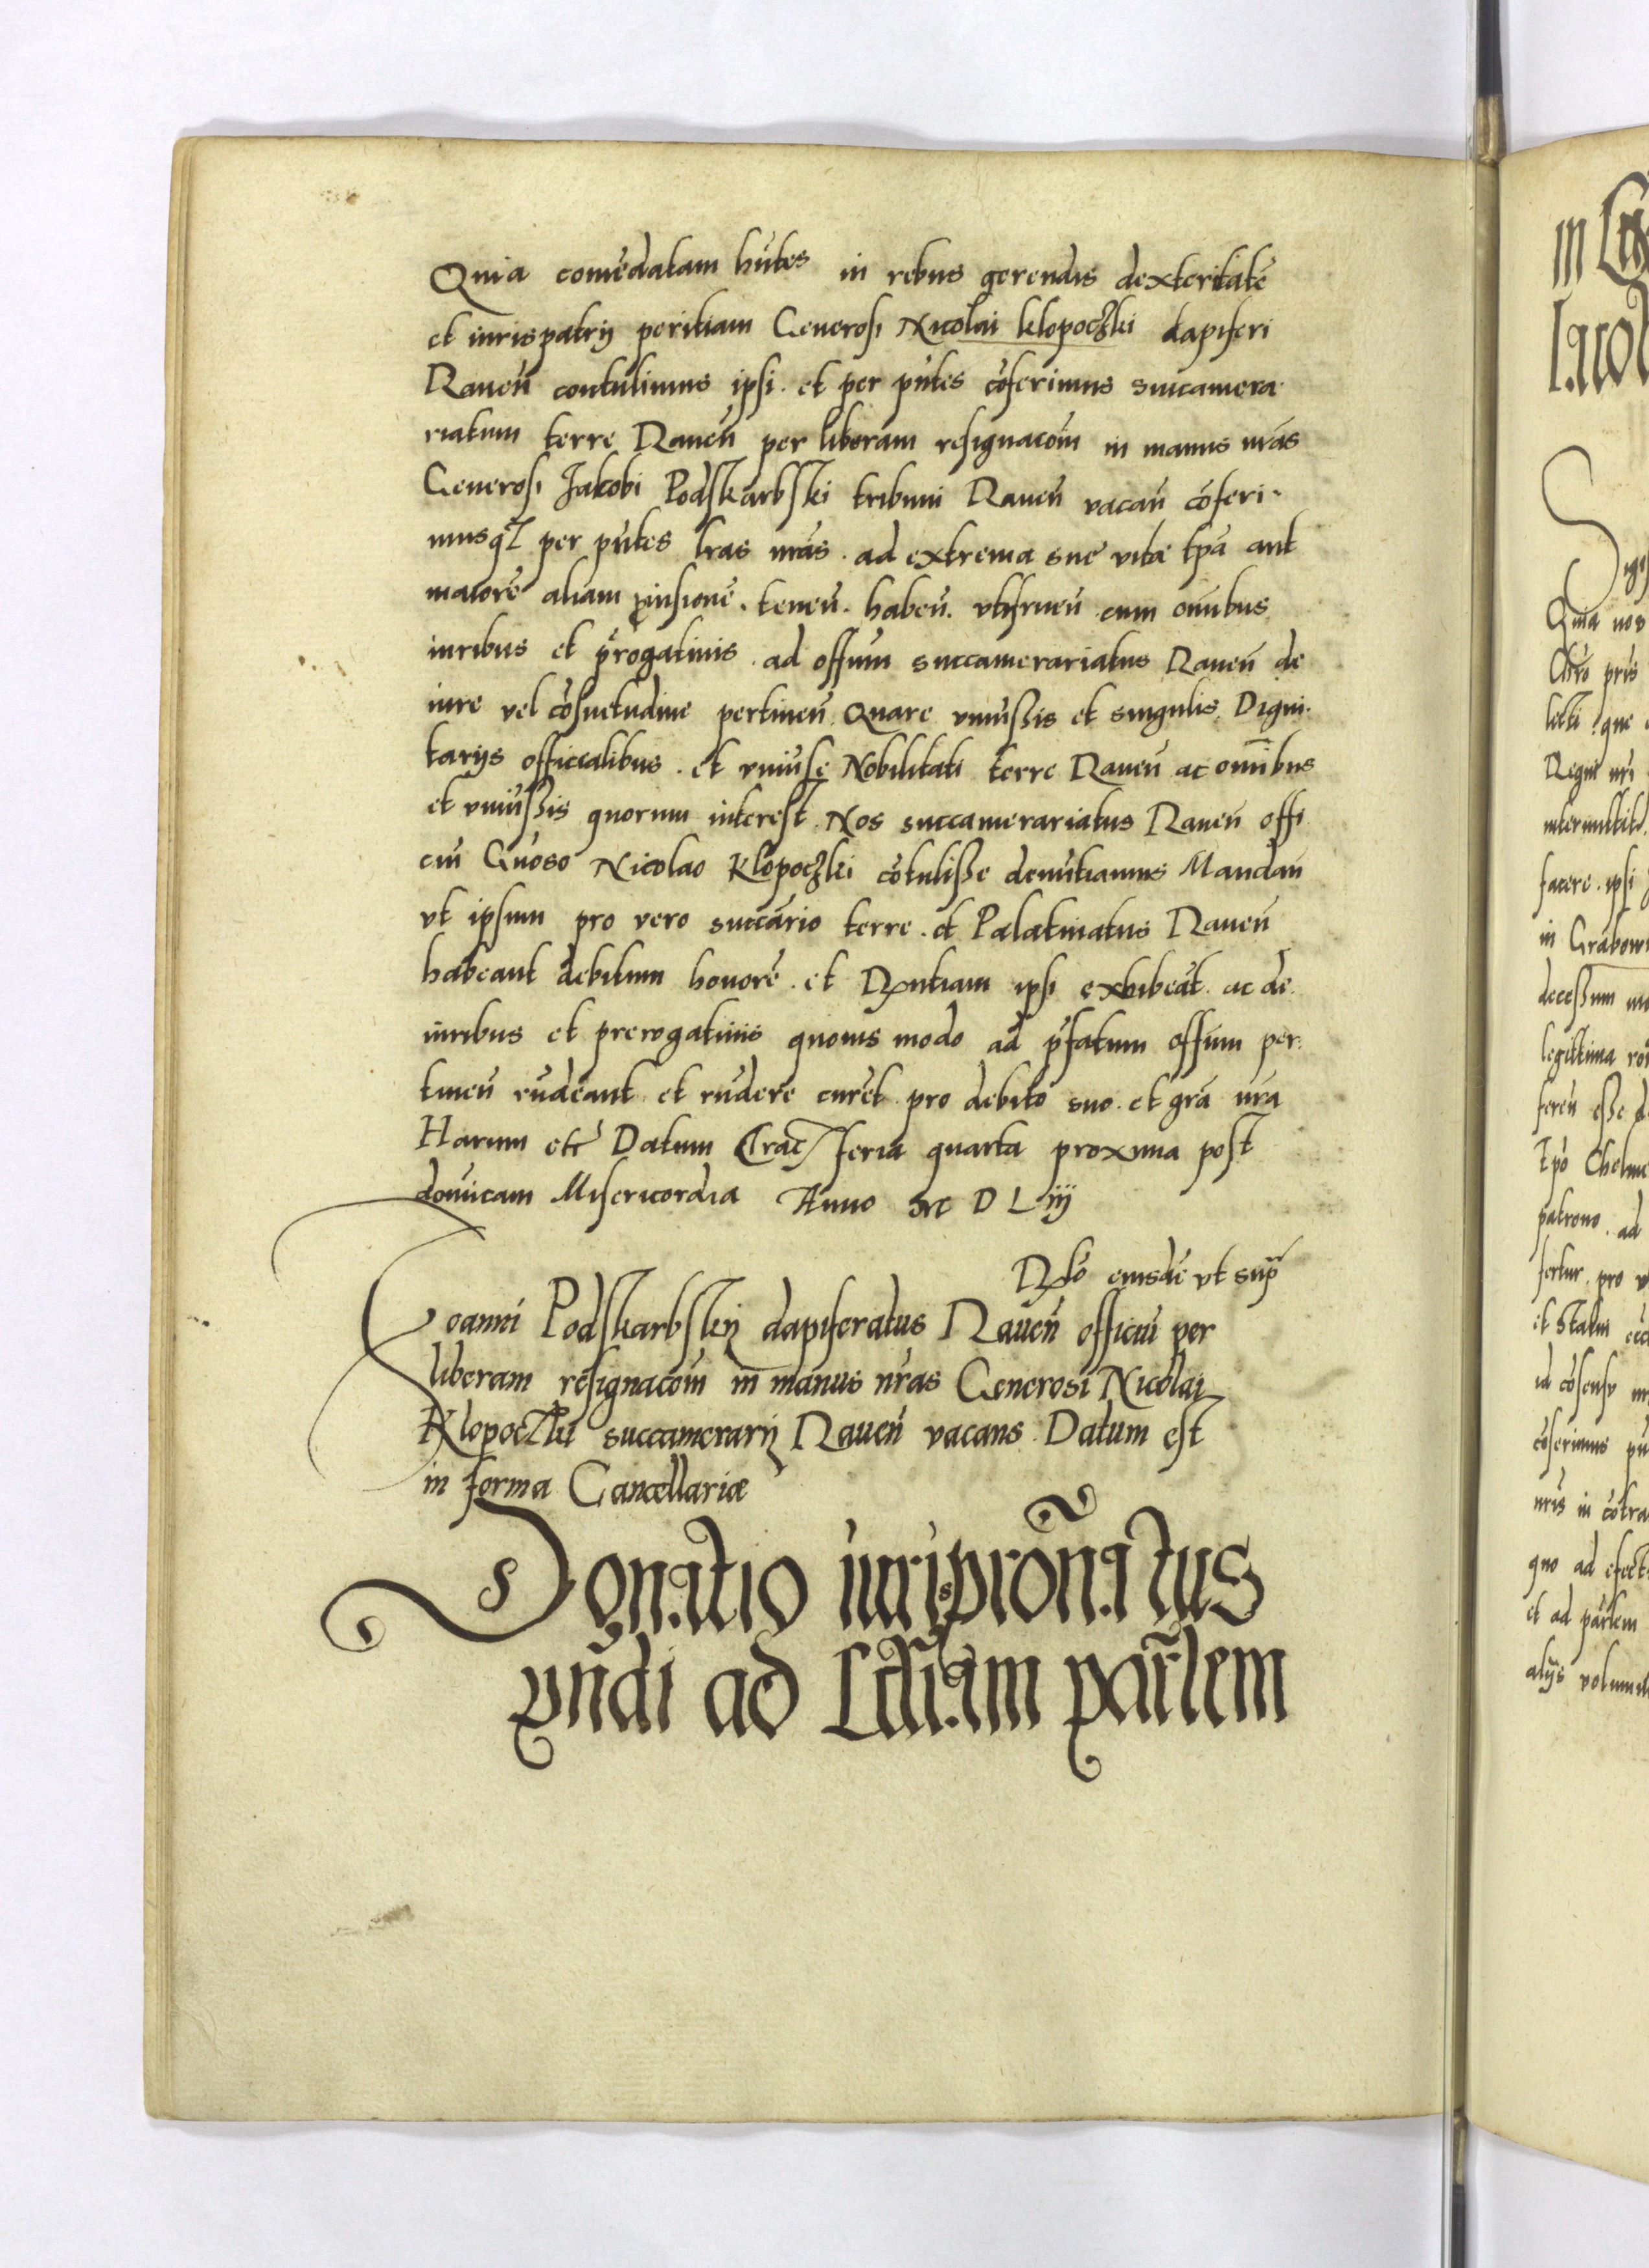 Quia comēdatam hñtes in rebus gerendis dexteritatē
et iuris patrij peritiam Generosi Nicolai Klopoczki dapiferi
Raueñ contulimus ipsi . et per pñtes cōferimus succamera
riatum terre Raueñ per liberam resignacōm in manus nrās
Generosi Jakobi Podskarbski tribuni Raueñ vacañ cōferi-
musq3 per pñtes lras nrās . ad extrema sue vitæ tpā aut
maiorē aliam . teneñ . habeñ . vtifrueñ . cum omībus
iuribus et prērogatiuis . ad offūm succamerariatus Raueñ de
iure vel cōsuetudine pertineñ . Quare vniuīßis et singulis Digni-
tarijs officcalibus . et vniuīse Nobilitati terre Raueñ ac omībus
et vniuīßis quorum interest . Nos succamerariatus Raueñ offi
ciū Gnōso Nicolao Klopoczki cōtuliße denūtiamus Mandañ
vt ipsum pro vero succārio terre . et Palatinatus Raueñ
habeant debitum honorē . et Rxntiam ipsi exhibeāt . ac de
iuribus et prerogatiuis quouis modo ad pfatum offūm per-
tineñ rñdeant et rñdere curēt . pro debito suo . et grā nrā
Harum etc̄ Datum Crac̄ feria quarta proxima post
domīcam Misericordia Anno M D L iij
Rxlō eiusdē vt sup̄
Joanni Podskarbskij dapiferatus Raueñ officiū per
liberam resignacōm in manus nrās Generosi Nicolai
Klopoczki succamerarij Raueñ vacans . Datum est
in forma Cancellariæ
Donatio iuris pro͂natus
vñdi ad Ecclīam par͂lem